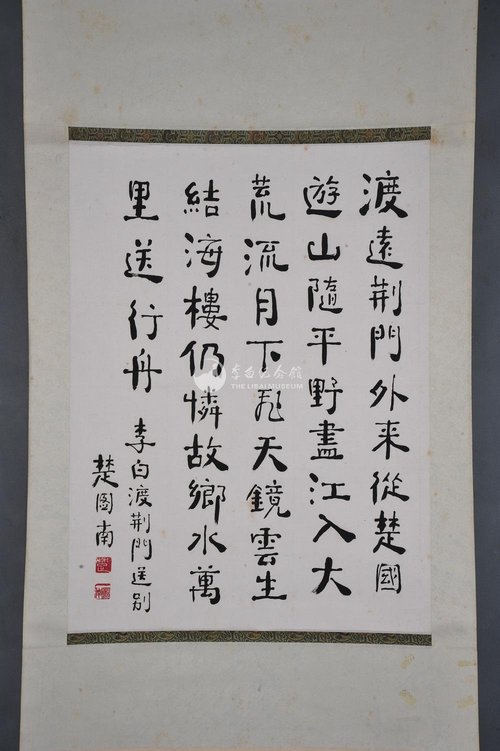 渡遠荆門外来從楚國
遊山隨平野盡江入大
荒流月下飛天鏡雲生
結海樓仍憐故鄉水萬
里送行舟
李白渡荆門送别
楚圖南
李白纪念館
THE LIBAI MUSEUM